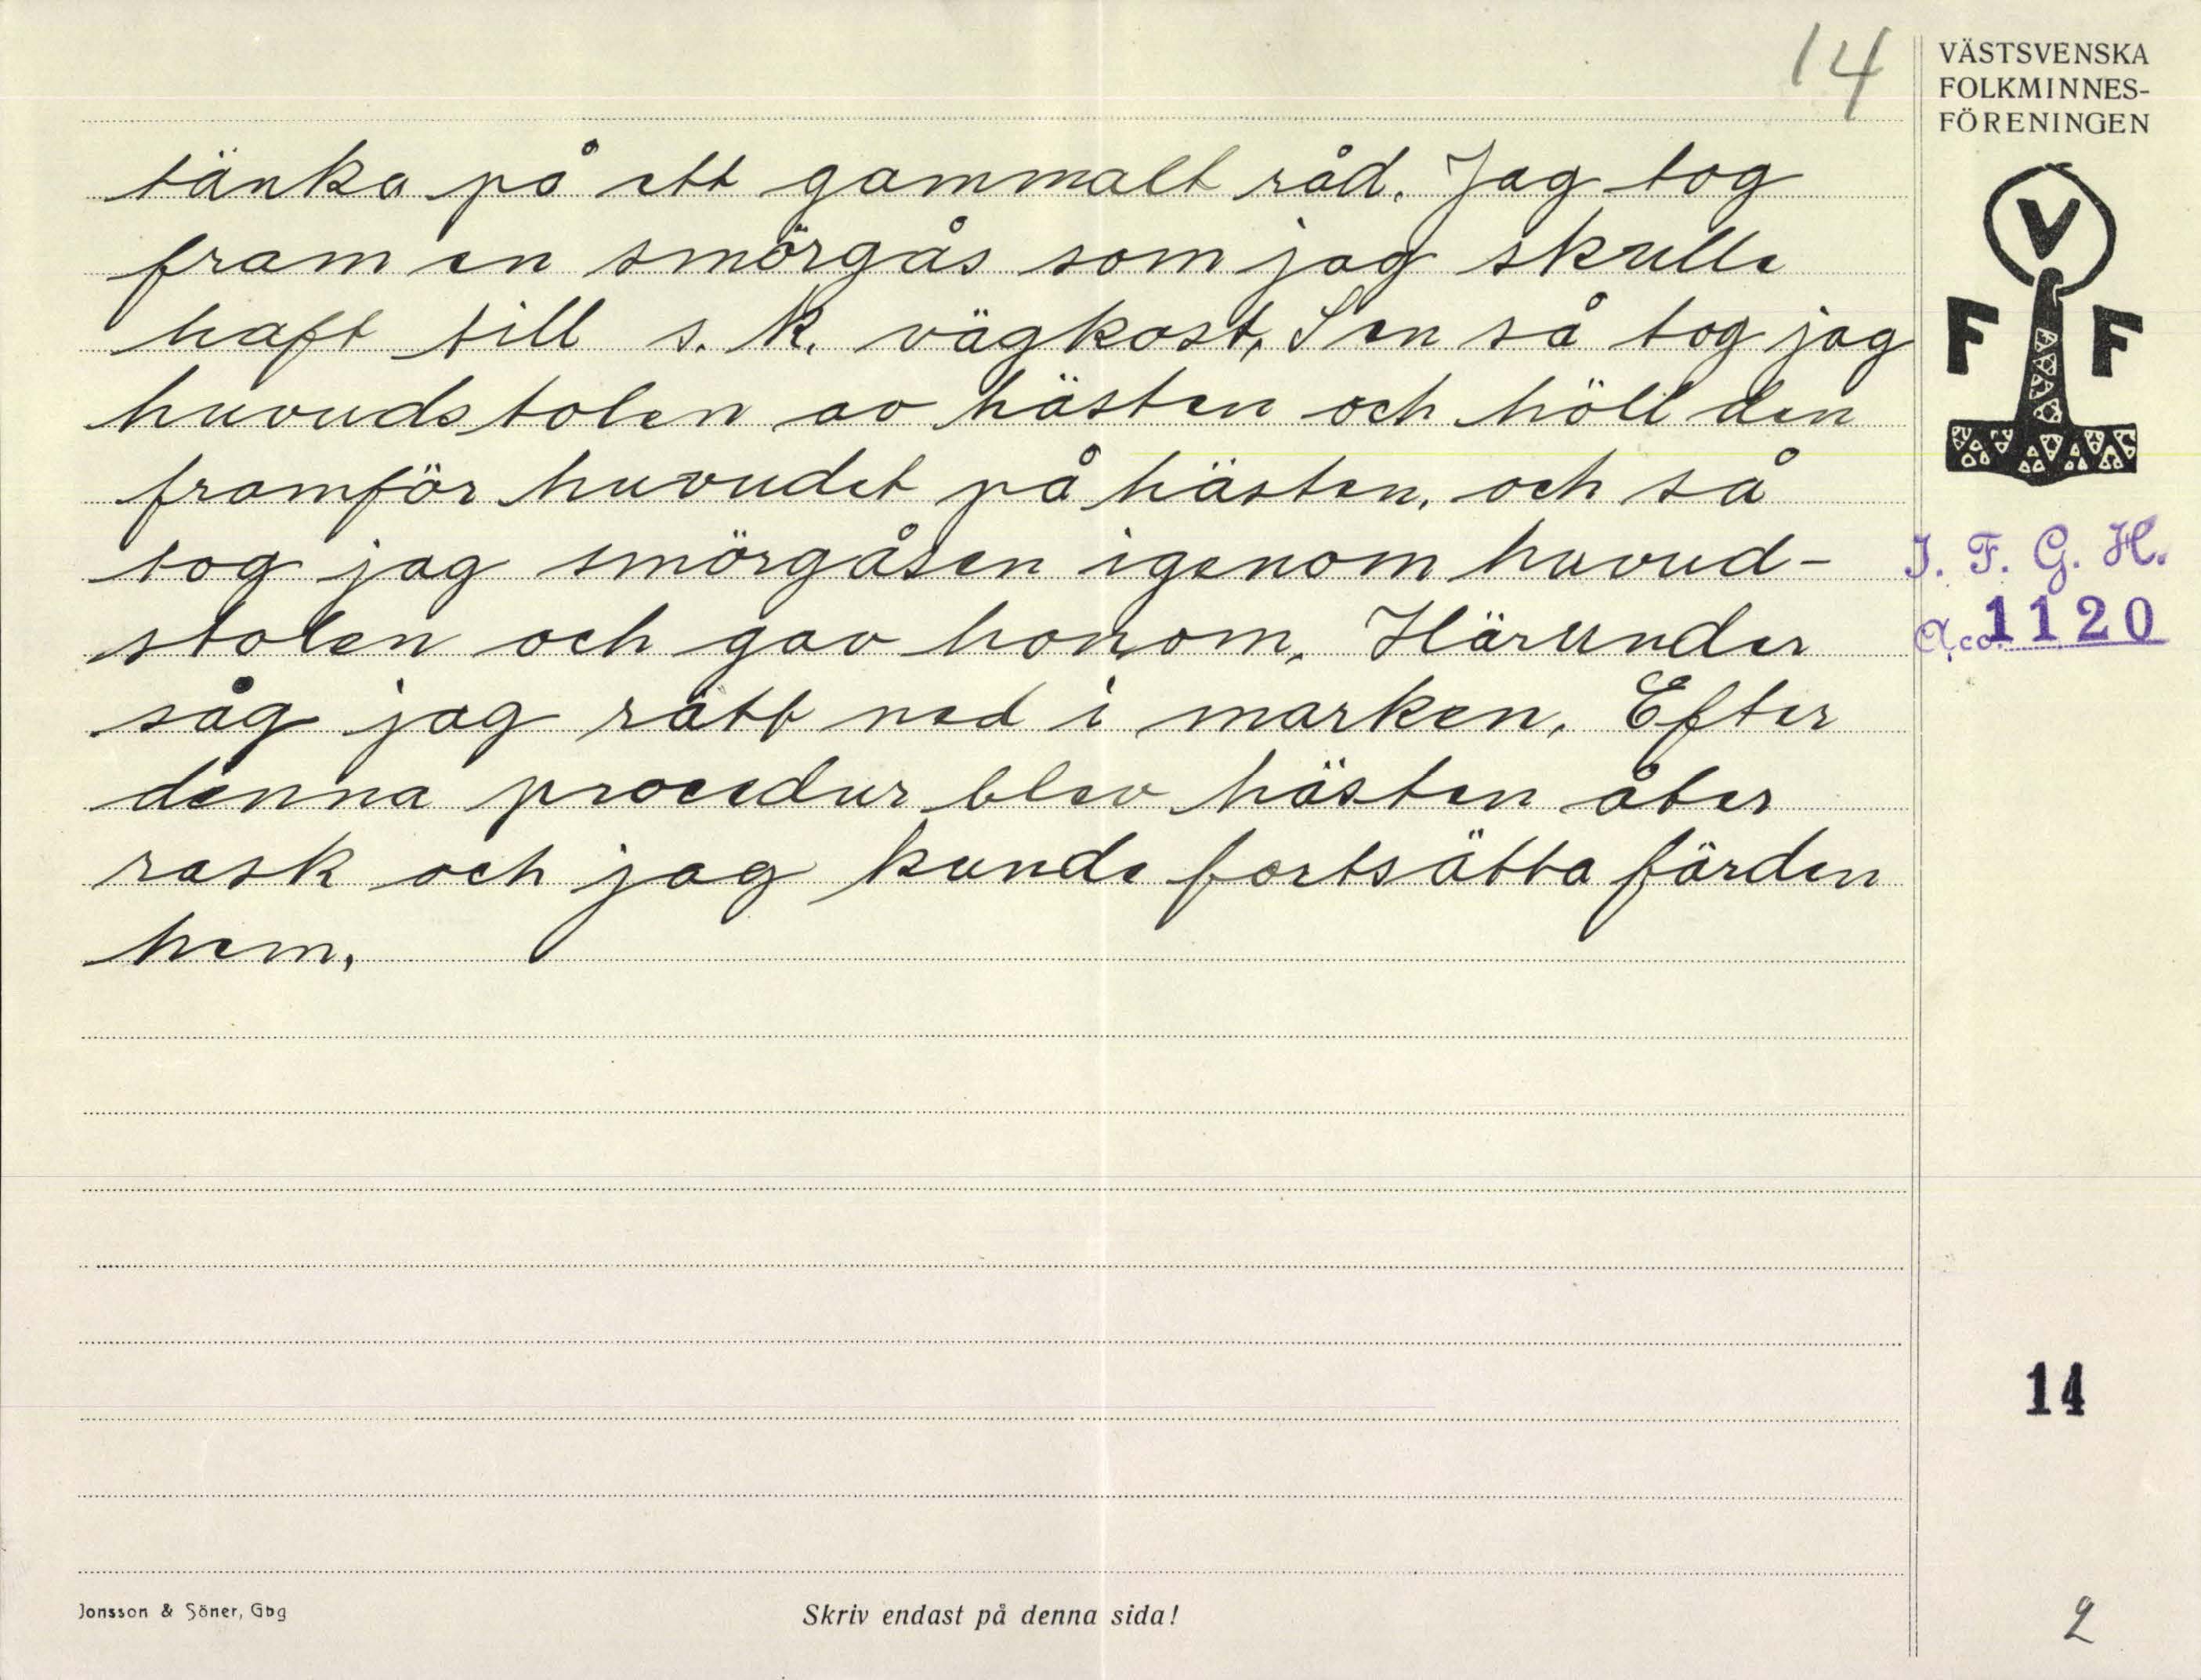 14
VÄSTSVENSKA
FOLKMINNES-
FÖRENINGEN
tänka på ett gammalt råd. Jag tog
fram en smörgås som jag skulle
haft till s. k. vägkost, Sen så tog jag
huvudstolen av hästen och höll den
framför huvudet på hästen, och så
tog jag smörgåsen igenom huvud-
stolen och gav honom. Härunder
såg jag rätt ned i marken. Efter
denna procedur blev hästen åter
rask och jag kunde fortsätta färden
hem.
V
F F
I. F. G. H.
Acc. 1120
14
Jonsson & Söner, Gbg
Skriv endast på denna sida!
2